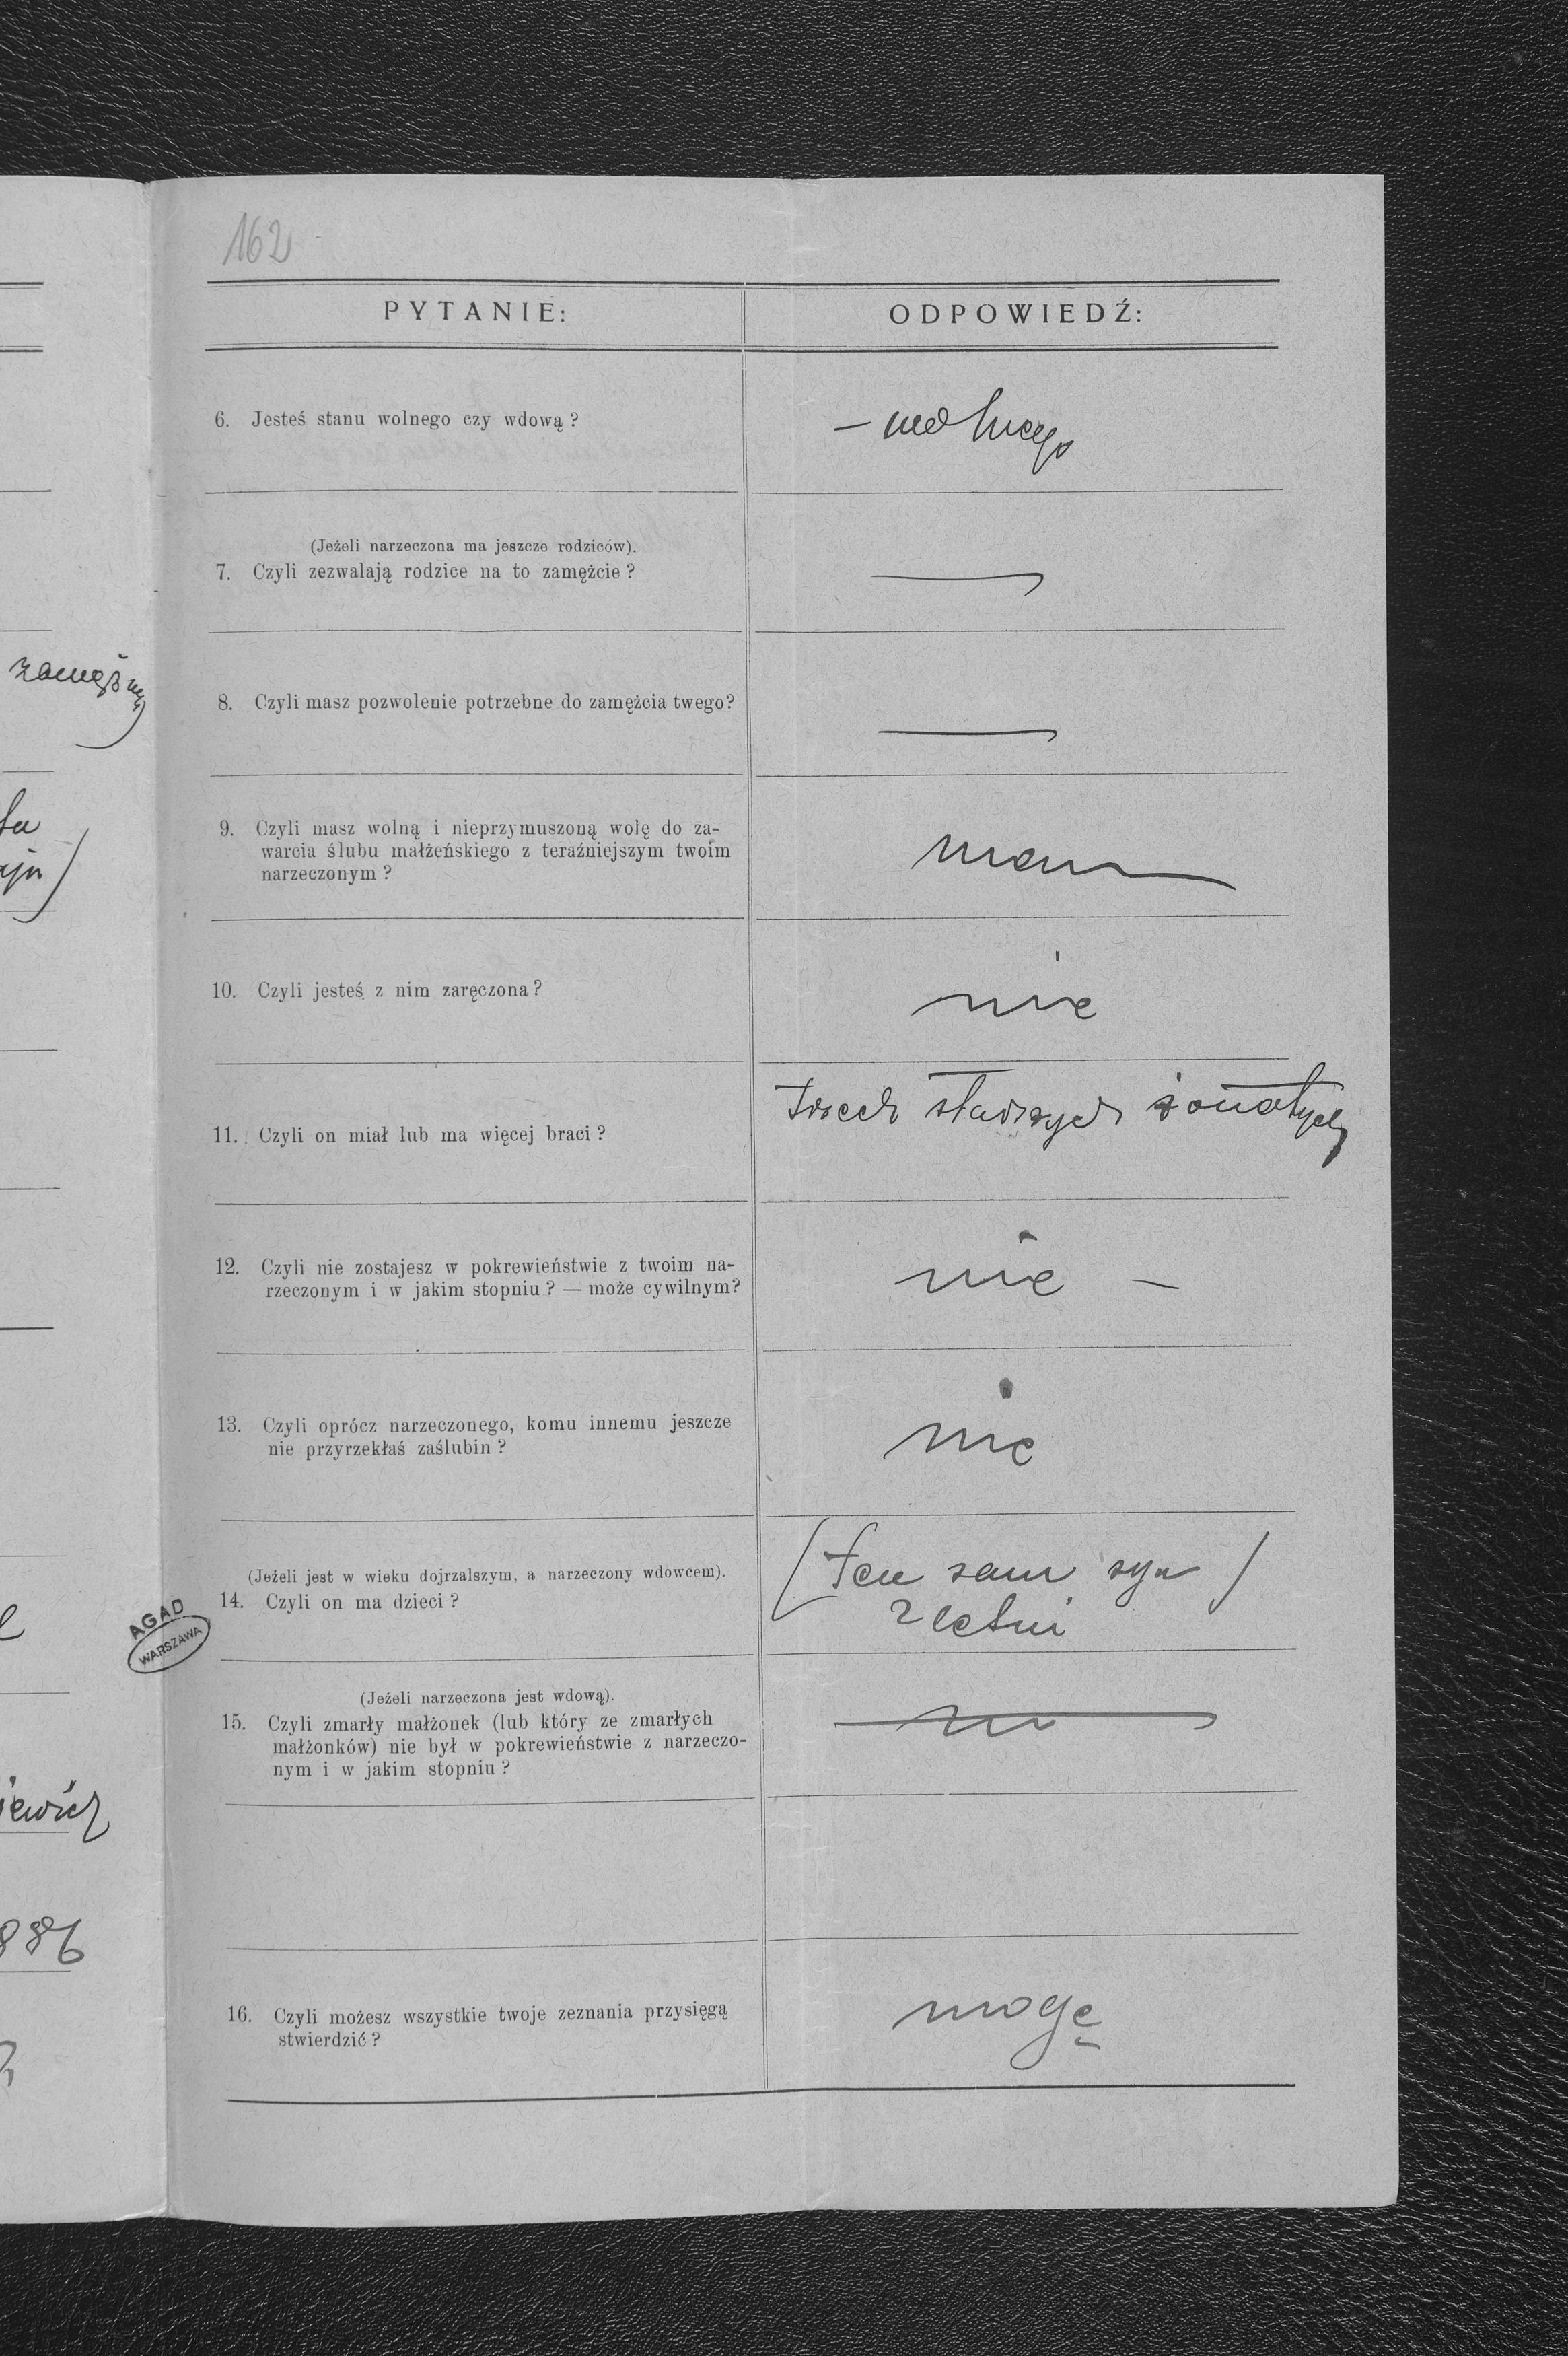 162
PYTANIE:
ODPOWIEDŹ:
6. Jesteś stanu wolnego czy wdową?
– wolnego
(Jeżeli narzeczona ma jeszcze rodziców).
7. Czyli zezwalają rodzice na to zamężcie?
8. Czyli masz pozwolenie potrzebne do zamężcia twego?
9. Czyli masz wolną i nieprzymuszoną wolę do za-
warcia ślubu małżeńskiego z teraźniejszym twoim
narzeczonym?
mam
10. Czyli jesteś z nim zaręczona?
nie
11. Czyli on miał lub ma więcej braci?
trzech starszych żonatych
12. Czyli nie zostajesz w pokrewieństwie z twoim na-
rzeczonym i w jakim stopniu? — może cywilnym?
nie –
13. Czyli oprócz narzeczonego, komu innemu jeszcze
nie przyrzekłaś zaślubin?
nie
(Jeżeli jest w wieku dojrzalszym, a narzeczony wdowcem).
14. Czyli on ma dzieci?
(ten sam syn)
2 letni
(Jeżeli narzeczona jest wdową).
15. Czyli zmarły małżonek (lub który ze zmarłych
małżonków) nie był w pokrewieństwie z narzeczo-
nym i w jakim stopniu?
16. Czyli możesz wszystkie twoje zeznania przysięgą
stwierdzić?
mogę
AGAD
WARSZAWA
zamężny
886